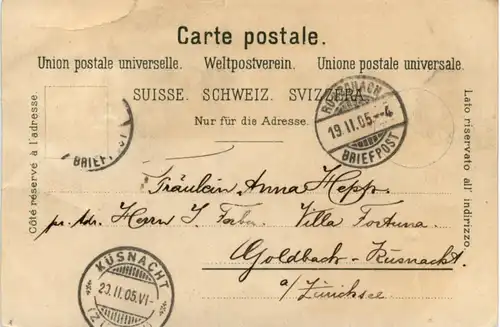 Carte postale.
Union postale universelle. Weltpostverein. Unione postale universale.
SUISSE. SCHWEIZ. SVIZZERA.
Nur für die Adresse.
Côté réservé à l'adresse.
Lato riservato all' indirizzo.
BRIEFPOST
19.II.05.-4
BRIEFPOST
Fräulein Anna Hepp.
pr. Adr. Herrn J. Faber. Villa Fortuna.
Goldbach-Küsnacht
a/Zürichsee
KÜSNACHT
20.II.05.VI-